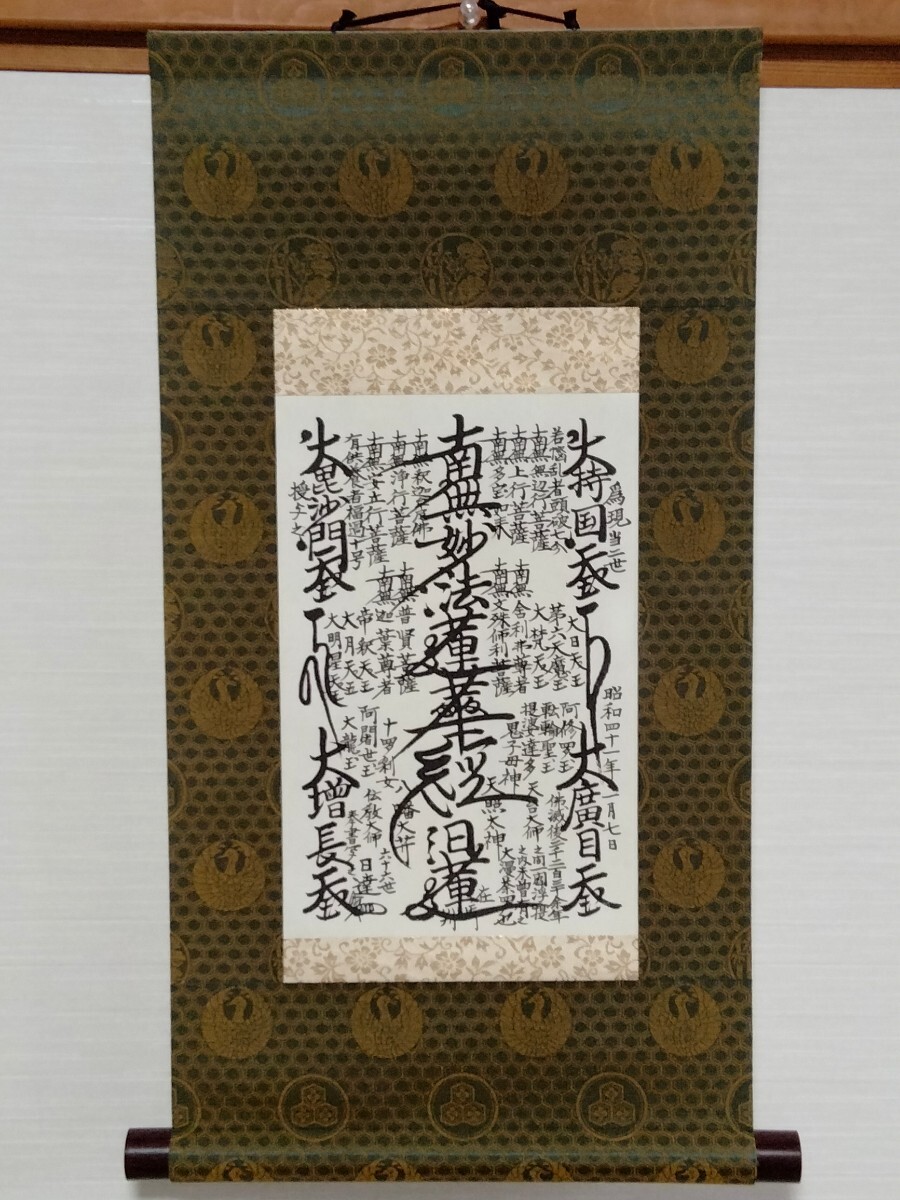 為現当二世
昭和四十一年一月七日
大持国天王
大廣目天王
若悩乱者頭破七分
南無無辺行菩薩
南無上行菩薩
南無多宝如来
大日天王
第六天魔王
大梵天王
南無舍利弗尊者
南無文殊師利菩薩
阿修羅王
転輪聖王
提婆達多
鬼子母神
天照大神
天台大師
佛滅後二千二百三十余年
之間一閻浮提
之内未曾有之
大漫荼羅也
南無妙法蓮華経
日蓮
在御判
南無釈迦牟尼佛
南無浄行菩薩
南無安立行菩薩
有供養者福過十号
南無普賢菩薩
南無迦葉尊者
帝釈天王
大月天王
大明星天王
十四羅刹女
阿闍世王
大龍王
八幡大菩薩
伝教大師
六十六世
日達
奉書写之
大毘沙門天王
大増長天王
授与之